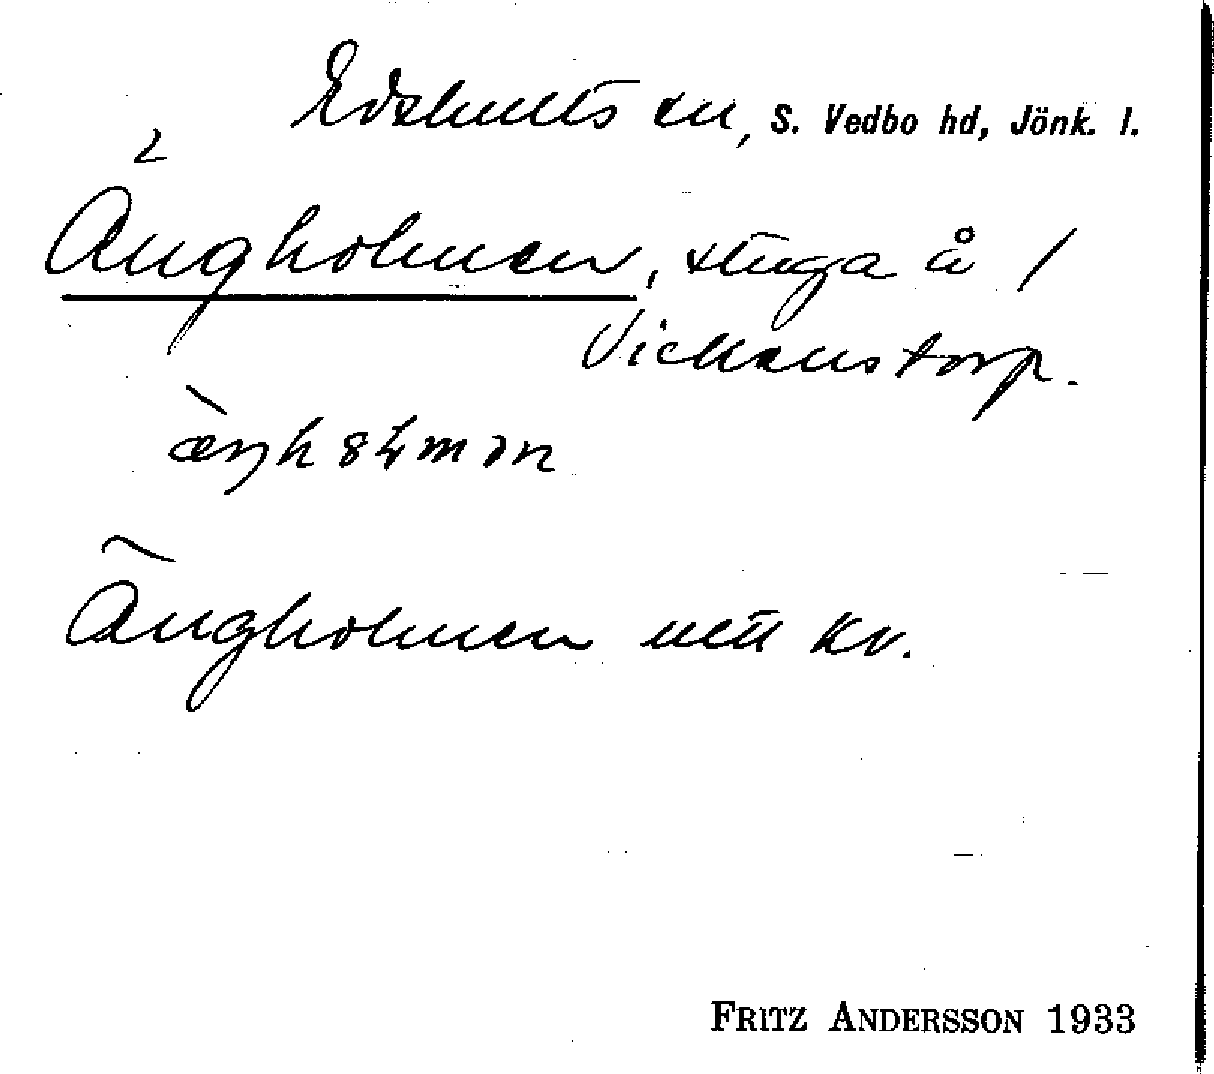 Edshults sn, S. Vedbo hd, Jönk. l.
2
Ängholmen, stuga å /
Vickenstorp.
Ängholmen utt kv.
FRITZ ANDERSSON 1933